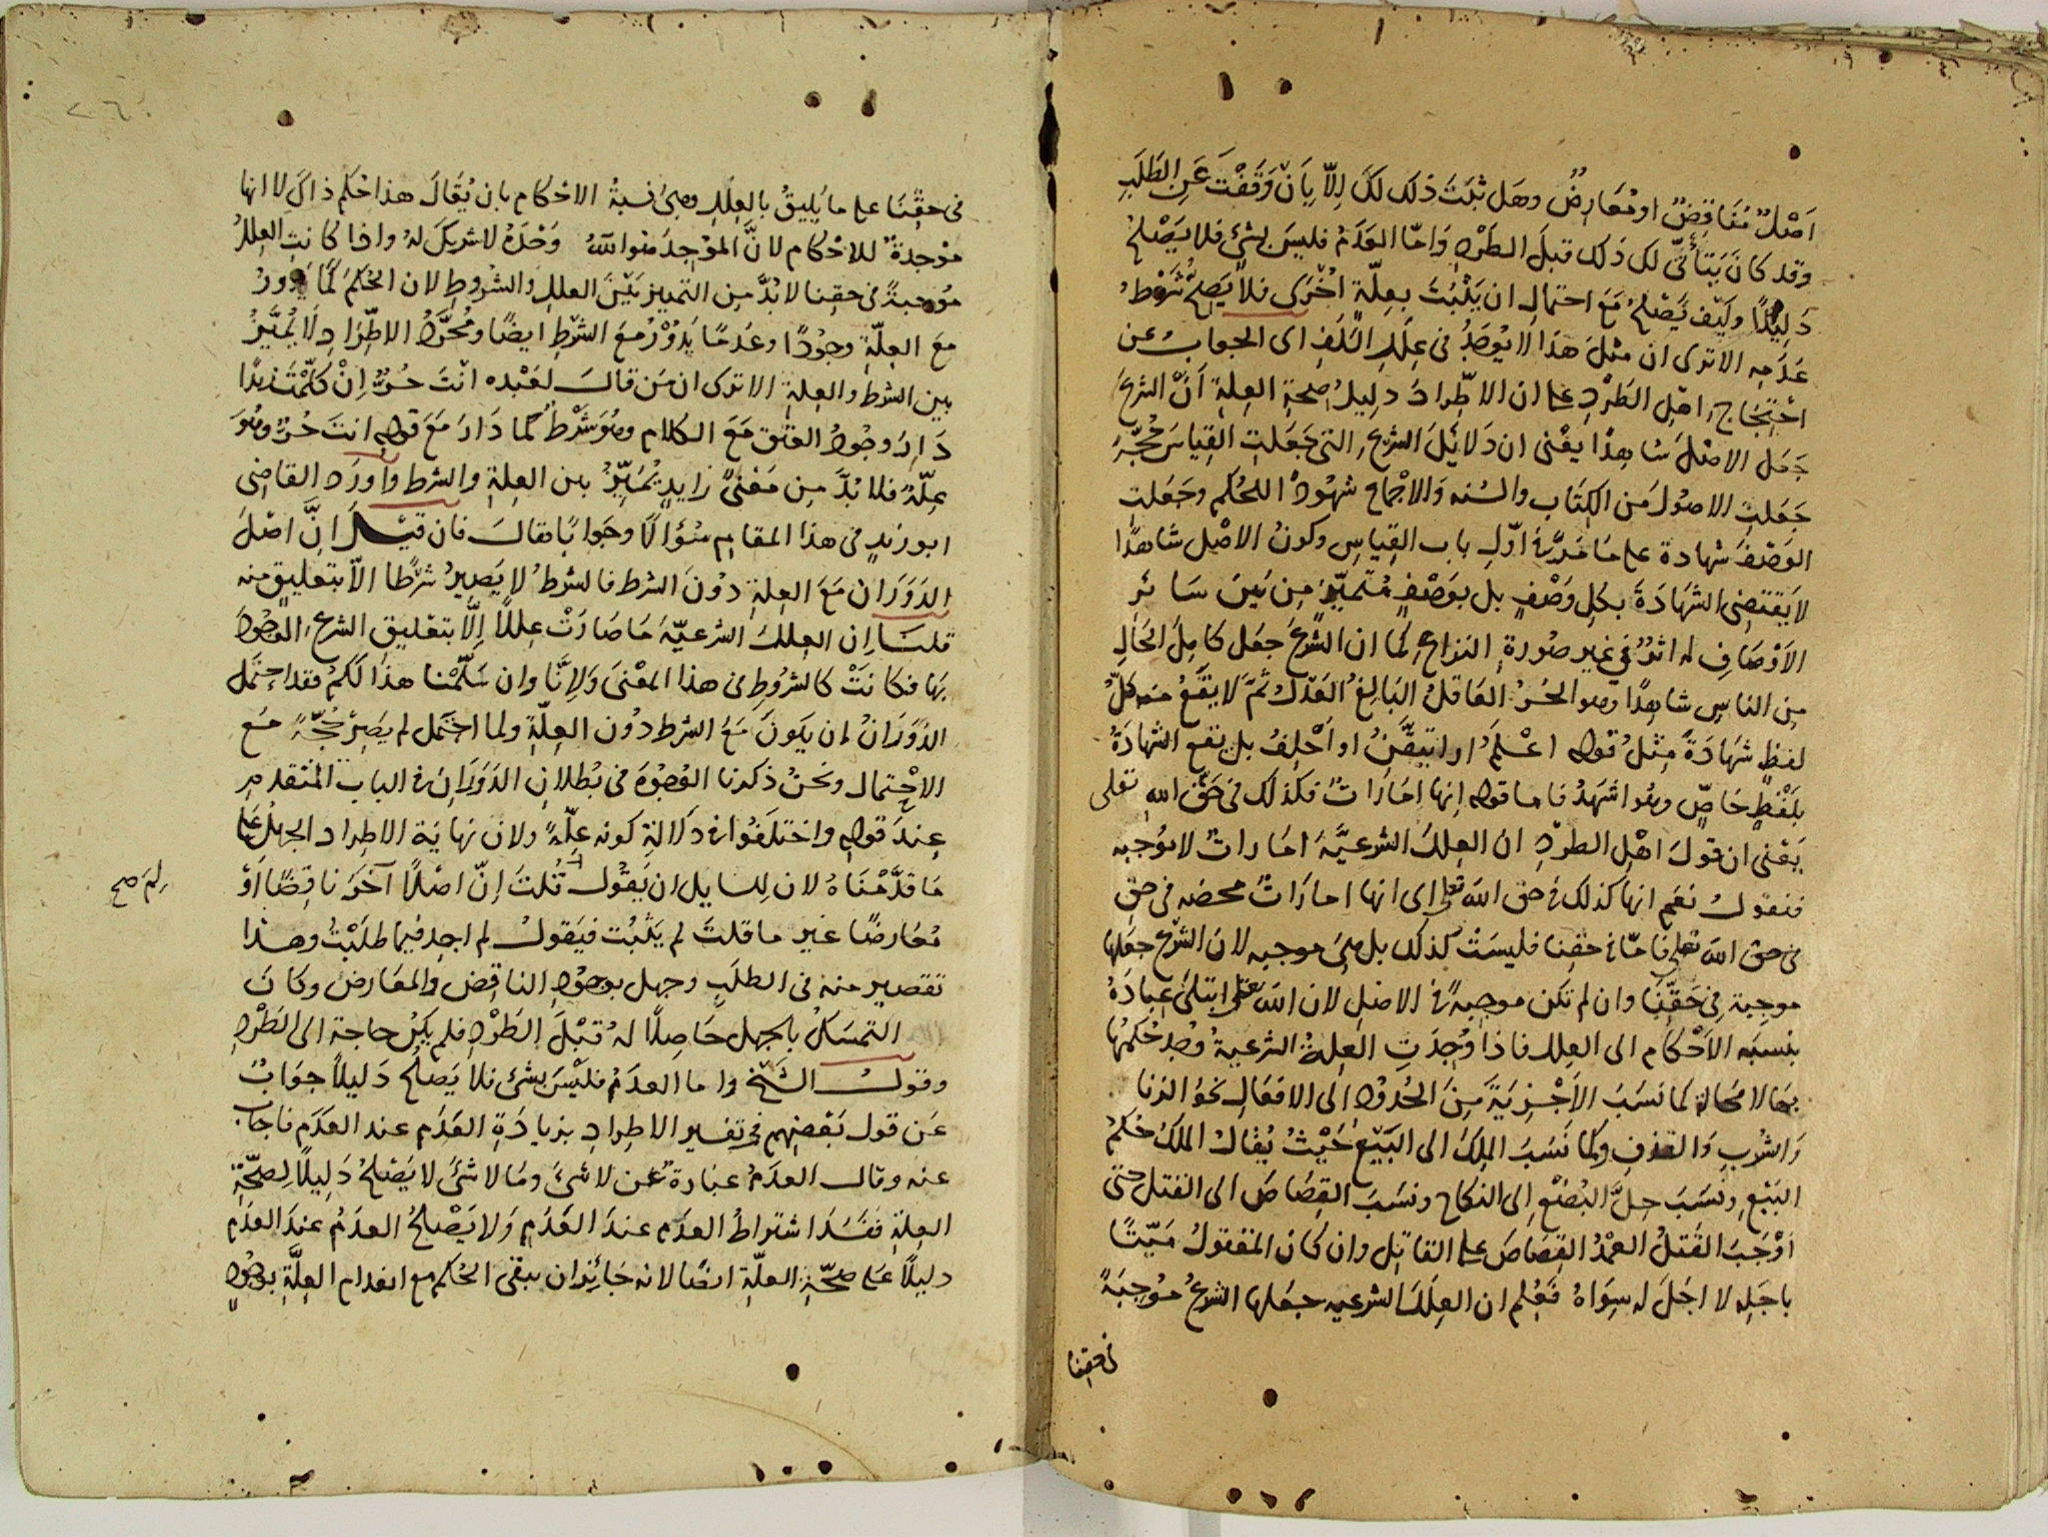 اَصْلٌ مُنَاقِضٌ او مُعَارِضٌ وهَل ثَبَتَ ذلك لكَ اِلّا بِاَنْ وَقَفْتَ عَنِ الطَلَبِ
وقد كانَ يَتَأتّى لك ذلك قبلَ الطَرْدِ وَامّا العَدَمُ فليسَ بشئ فلا يَصْلحُ
دَلِيلًا وكَيْف يَصْلحُ مَعَ احتمال ان يَثْبُتَ بعِلّة اُخْرَى فلا يَصِحُّ شَرْطُ
عَدَمِه الاترى ان مثلَ هَذا لا يُوجَدُ فى عِلَلِ السَلَفِ اى الجواب عن
احْتِجَاج اهْلِ الطَرْدِ على ان الاطّرادَ دليلُ صحة العِلة اَنّ الشرعَ
جَعَل الاصْلَ شاهِدًا يعْنى ان دَلائلَ الشرع التى جَعَلتِ القِيَاسَ حُجّةً
جَعَلتِ الاصُولَ مَن الكِتَاب والسُنه وَالاجْماع شهُودًا للحُكم وجَعَلتِ
الوَصْفَ شهادة على مَا مَرّ فى اَوّلِ باب القِياسِ وكونُ الاصْل شاهدًا
لا يَقتَضِى الشهَادَةَ بكلِ وَصْفٍ بل بوَصْفٍ مُتَميّزٍ مِن بَين سَائر
الاَوْصَافِ له اثرٌ فى غير صُورة النزاع كما ان الشرعَ جعَل كامِلَ الحَالِ
مِن الناسِ شاهِدًا وهو الحُرُ العَاقلُ البَالِغُ العَدْلُ ثُمَّ لا يقَعُ منه كلُّ
لفظٍ شهَادَةً مِثْلُ قوله اَعْلَمُ او اتيَقّنُ او اَحْلِفُ بل تقع الشهادَةُ
بلَفْظٍ خاصٍّ وهُو اشهَدُ فاما قوله اِنها اَمَارَاتٌ فكذلك فى حَقّ الله تعلى
يَعْنى ان قولَ اهْلِ الطردِ ان العِللَ الشرعيَّةَ امارات لا موُجبه
فنقول نعَم انها كذلك فى حق الله تعلى اى انها امارَاتٌ محضه فى حق
فى حق الله تعلى فامّا فى حقِنا فليسَتْ كذلك بل هِىَ موجبه لان الشرْعَ جعَلها
موجبة فى حَقّنَا وان لم تكن موجبةً فى الاصْلِ لان الله تعلى ابتلىَ عِبادَهُ
بنسبَه الاَحْكام الى العِلل فاذا وُجِدَتِ العِلةُ الشرعيةُ وُجِدَ حُكمُها
بهَا لا مَحالة كما نَسَبَ الاَجْزيَةَ مِنَ الحُدُودِ الَى الافعَالِ نحوُ الزنا
وَالشُربِ وَالقذفِ وكما نَسَبَ المِلكَ الى البَيْعِ حَيْثُ يُقالُ المِلكُ حُكمُ
البَيْعِ ونَسَبَ حِلَّ البُضْعِ اِلى النكاح ونسَبَ القِصَاصَ الى القتل حتى
اَوْجَبَ القَتلُ العمْدُ القِصَاصَ على القاتِل وان كان المقتولُ مَيّتًا
باجَلِه لا اجَلَ له سِوَاهُ فَعُلِم ان العِلَلَ الشرعيه جعَلها الشرعُ موُجِبَةً
فى حقِنا
فى حقِنَا على ما يَليقُ بالعِلَلِ وهى نِسبَةُ الاحْكام بان يُقَالَ هذا حُكم ذاكَ لا انها
موْجدةٌ للاحْكام لانَّ الموْجِدَ هوالله وَحْدَهُ لا شريكَ لهُ واذا كانتِ العِللُ
موُجبةً فى حقِنا لا بُدَّ مِن التمييز بَيْنَ العلل والشروطِ لان الحُكمَ كَمَا يَدُورُ
مَعَ العِلّةِ وجُوْدًا وعَدمًا يَدُوْرُ مَعَ الشرْطِ ايضًا ومُجرَّدُ الاطِّرَادِ لَا يُمَيَّزُ
بين الشرط والعِلة الاترى ان مَن قالَ لعَبْده انْتَ حُرٌّ اِنْ كلّمْتَ زيدًا
دَارَ وجُودُ العتق مَعَ الكلام وهُوَ شَرْطٌ كما دَارَ مَعَ قوله انتَ حُرٌّ وهُوَ
عِلّةٌ فلا بُدَّ مِن مَعْنًى زايدٍ يُمَيِّزُ بين العِلةِ والشرط واورَدَ القاضِى
ابو زيدٍ فى هذا المقامِ سُؤالًا وجَوابًا فقالَ فان قيلَ اِنَّ اصْلَ
الدَوَرَانِ مَعَ العِلةِ دوْنَ الشرط فالشرطُ لا يَصِيرُ شرْطًا الّا بتعليقٍ منه
قلنَا اِن العِللَ الشرعيّةَ مَا صَارَتْ عِللًا اِلَّا بتعليق الشرع الوُجُودَ
بهَا فكانَتْ كالشرُوطِ فى هذا المعْنى وَلِاَنَّا وان سَلّمْنا هذا لَكُمْ فقد احتمَل
الدَوَرَانُ ان يَكونَ مَعَ الشرط دُون العِلّةِ ولما احتمَل لم يَصِرْ حُجّةً مَع
الاحْتِمال ونَحْنُ ذكرنا الوُجُوْهَ فى بُطلانِ الدَوَرَانِ فى الباب المتقدم
عِندَ قوله واختلَفوُا فى دَلالةِ كونه عِلّةً ولان نهايَة الاطراد الجهلُ على
مَا قدَّمْنَاهُ لان لِلسايل ان يَقُوْلَ قُلتَ اِنّ اصْلًا آخرَ ناقِضًا اَوْ
لِمَ صح
مُعَارضًا غير ما قلتَ لم يَثْبُت فيَقولُ لم اجِد فيما طلَبْتُ وهذا
تقصِير منه فى الطلَبِ وجهل بوجُودِ الناقِض والمعَارض وكانَ
التمسّكُ بالجهل حَاصِلًا لهُ قبْلَ الطَرْدِ فلم يَكُنْ حاجة الى الطَرْدِ
وقولُ الشَيْخ واما العدَمُ فليْسَ بشئ فلا يَصْلحُ دَليلاً جوَابٌ
عَن قول بَعْضِهم فى تفسير الاطرادِ بزيادَةِ العَدَم عند العدَم فاجاب
عنه وقال العدَمُ عبارةٌ عن لا شئ ومَا لا شئَ لا يَصْلحُ دَلِيلًا لصِحَّةِ
العِلةِ فَفسَدَ اشتراطُ العدَم عندَ العَدَم وَلا يَصْلحُ العدَمُ عندَ العدَم
دليلًا عَلى صحّةِ العلّةِ ايضًا لانه جَائزٌ ان يبقى الحُكم مع انعدام العِلّةِ بوجُودِ